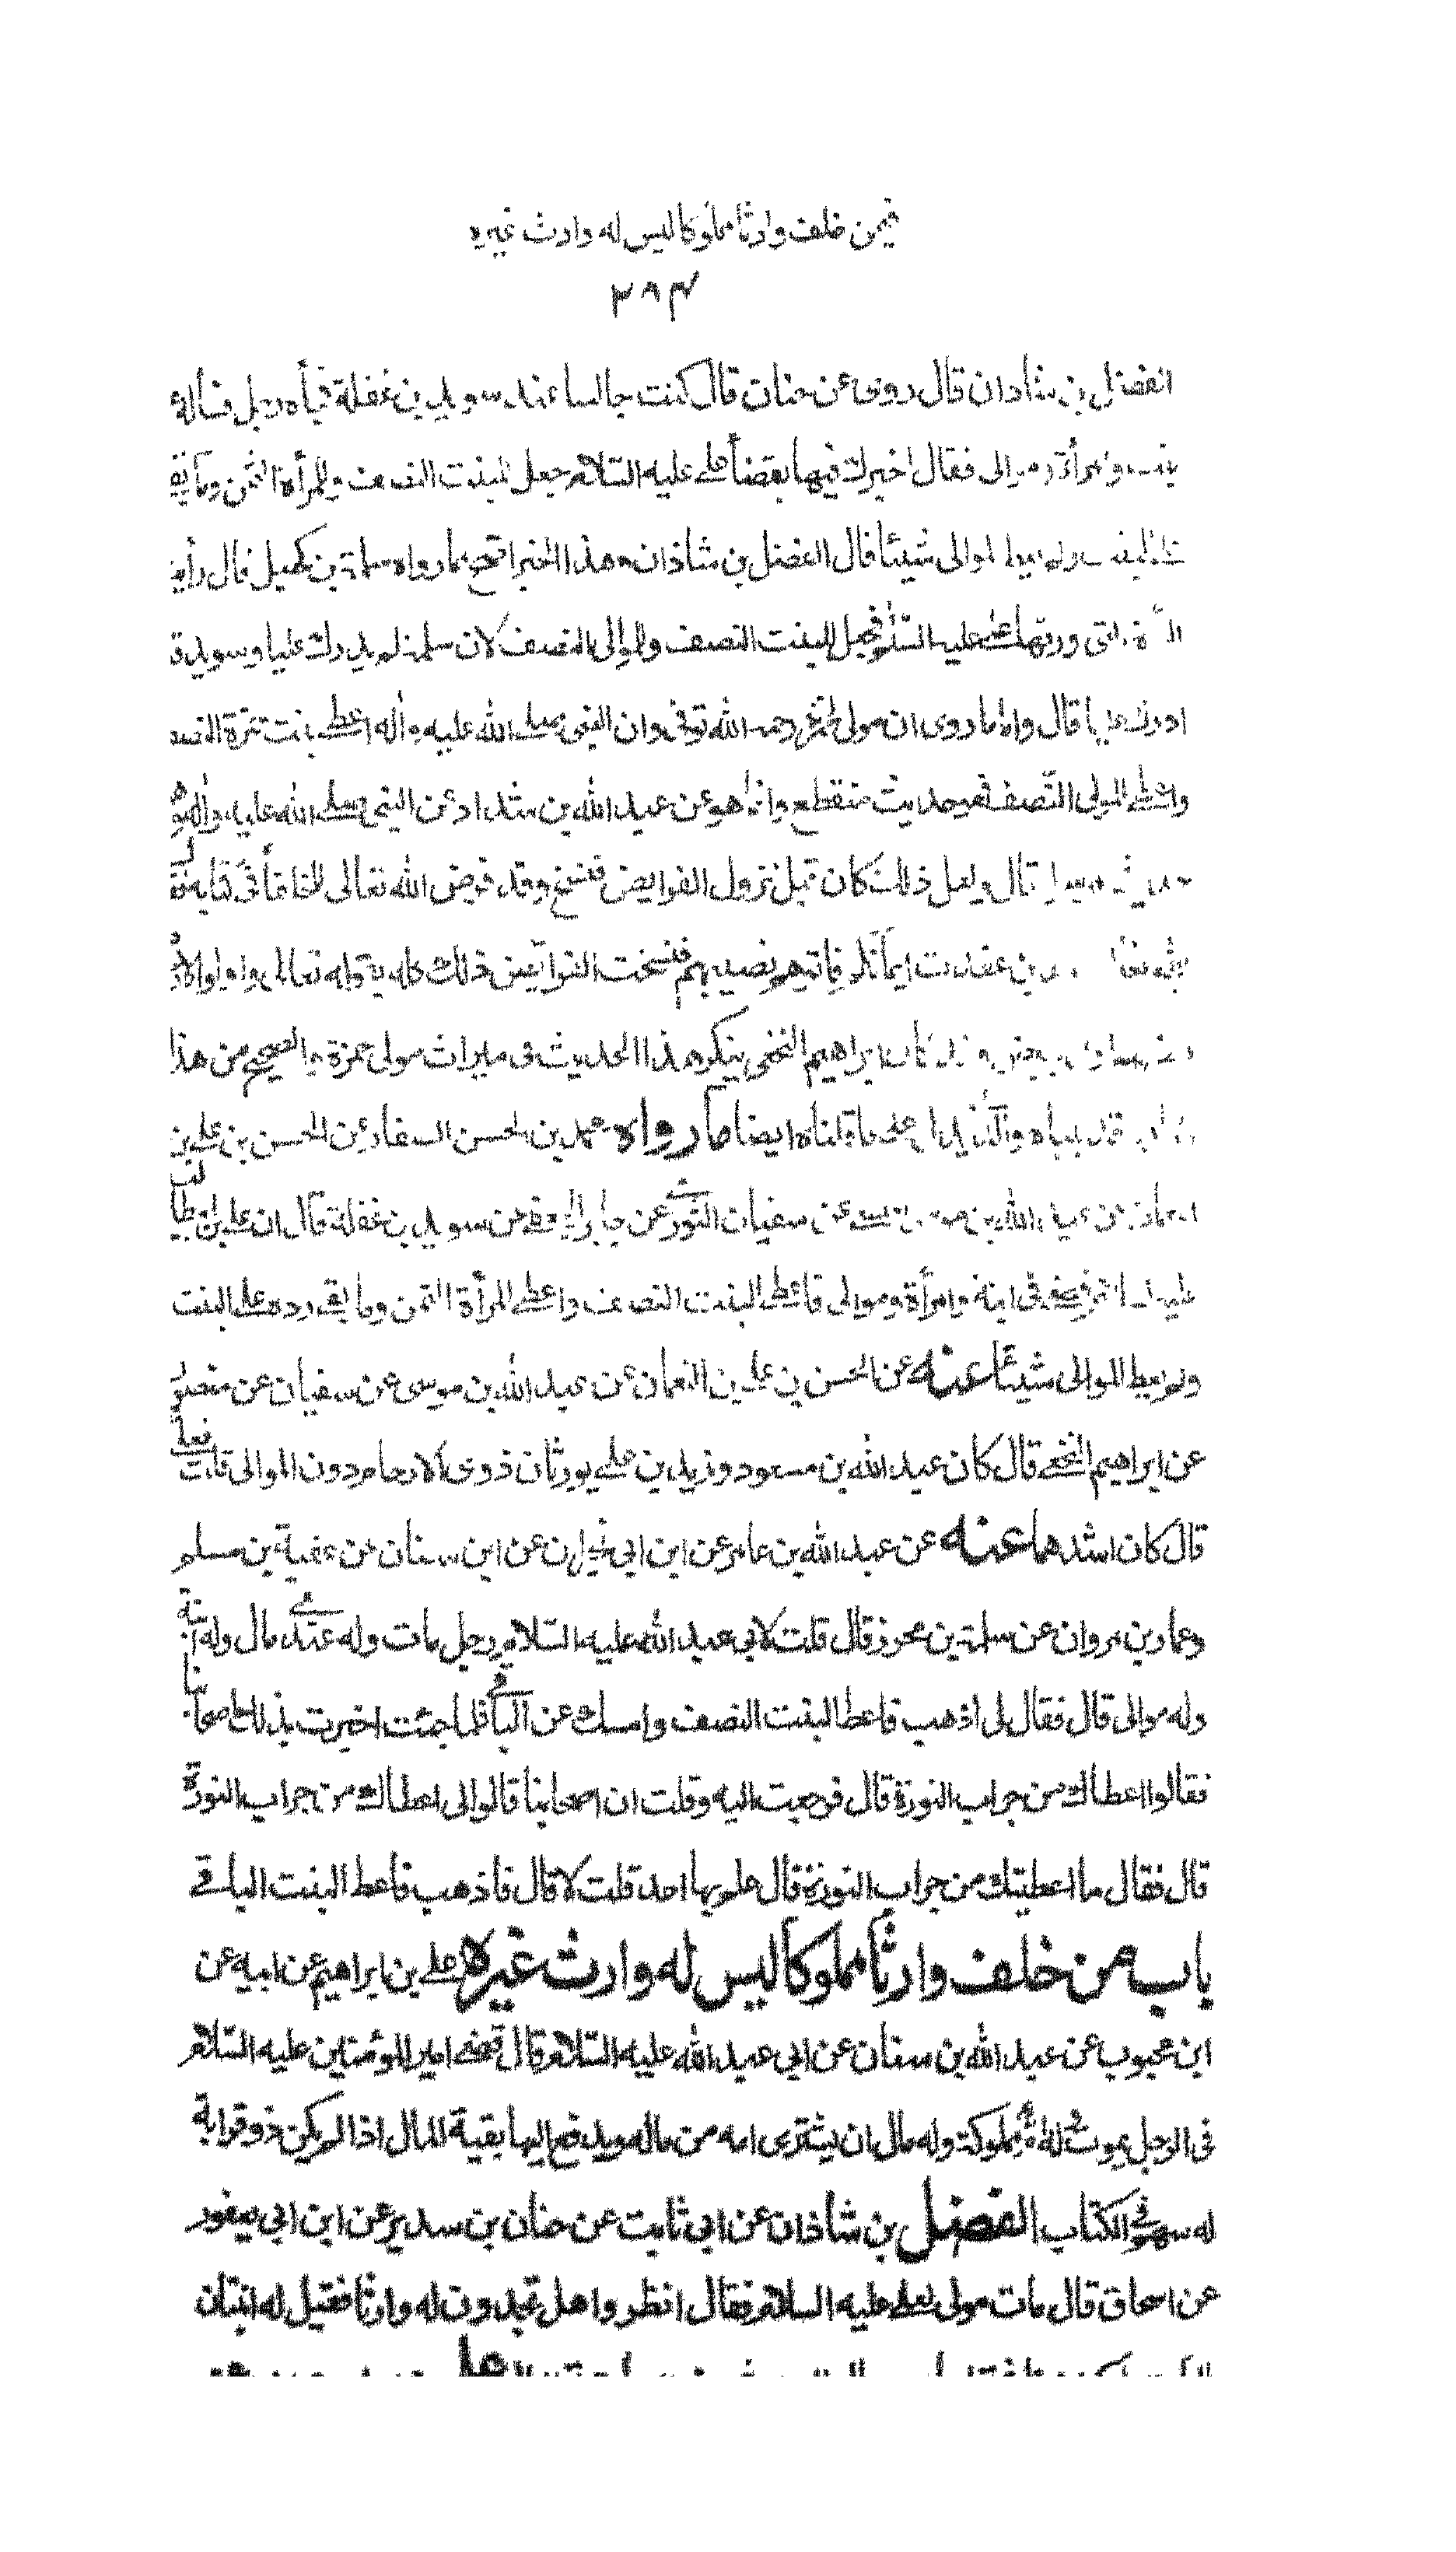 فيمن خلف وارثا مملوكا ليس له وارث غيره
٢٨٣
الفضل بن شاذان قال روى عن حنان قال كنت جالسا عند سويد بن غفلة فجاءه رجل فسأله عن
بنت وامرأة وموالى فقال اخبرك فيها بقضاء على عليه السلام جعل للبنت النصف وللمرأة الثمن وما بقى
شيئا قال الفضل بن شاذان وهذا الخبر اصح مما رواه سلمة بن كهيل قال رأيت
التى ورثها على عليه السلم فجعل للبنت النصف وللموالى النصف لان سلمة لم يدرك عليا وسويد قد
ادرك عليا قال واما ما روى ان مولى لحمزة رحمه الله توفى وان النبى صلى الله عليه واله اعطى بنت حمزة النصف
واعطى المولى النصف فهو حديث منقطع وانما هو عن عبد الله بن شداد عن النبى صلى الله عليه واله وهو
مرسل قال ولعل ذلك كان قبل نزول الفرايض فنسخ وقد فرض الله تعالى للحلفاء فى كتابه فقال
عقدت ايمانكم فاتوهم نصيبهم فنسخت الفرايض ذلك كله بقوله تعالى واولوا الارحام
ابراهيم النخعى ينكر هذا الحديث فى ميراث مولى حمزة والصحيح من هذا
كله على ما قلناه ايضا ما رواه محمد بن الحسن الصفار عن الحسن بن على بن
النعمان عن عبيد الله بن موسى العبسى عن سفيان الثورى عن جابر الجعفى عن سويد بن غفلة قال ان على بن ابى طالب
عليه السلام قضى فى ابنة وامرأة وموالى فاعطى البنت النصف واعطى المرأة الثمن وما بقى رده على البنت
ولم يعط الموالى شيئا عنه عن الحسن بن على بن النعمان عن عبيد الله بن موسى عن سفيان عن منصور
عن ابراهيم النخعى قال كان عبد الله بن مسعود وزيد بن على يورثان ذوى الارحام دون الموالى قلت فعلى
قال كان اشدهما عنه عن عبد الله بن عامر عن ابن ابى نجران عن ابن سنان عن عقبة بن مسلم
وعمار بن مروان عن سلمة بن محرز قال قلت لابى عبد الله عليه السلام رجل مات وله عندى مال وله ابنة
وله موالى قال فقال لى اذهب فاعط البنت النصف وامسك عن الباقى فلما جئت اخبرت بذلك اصحابنا
فقالوا اعطاك من جراب النورة قال فرجعت اليه وقلت ان اصحابنا قالوا لى اعطاك من جراب النورة
قال فقال ما اعطيتك من جراب النورة قال علم بها احد قلت لا قال فاذهب فاعط البنت الباقى
باب من خلف وارثا مملوكا ليس له وارث غيره على بن ابراهيم عن ابيه عن
ابن محبوب عن عبد الله بن سنان عن ابى عبد الله عليه السلام قال قضى امير المؤمنين عليه السلام
فى الرجل يموت وله ام مملوكة وله مال ان يشترى امه من ماله ويدفع اليها بقية المال اذا لم يكن ذو قرابة
له سهم فى الكتاب الفضل بن شاذان عن ابى ثابت عن حنان بن سدير عن ابن ابى يعفور
عن اسحاق قال مات مولى لعلى عليه السلام فقال انظروا هل تجدون له وارثا فقيل له ابنتان